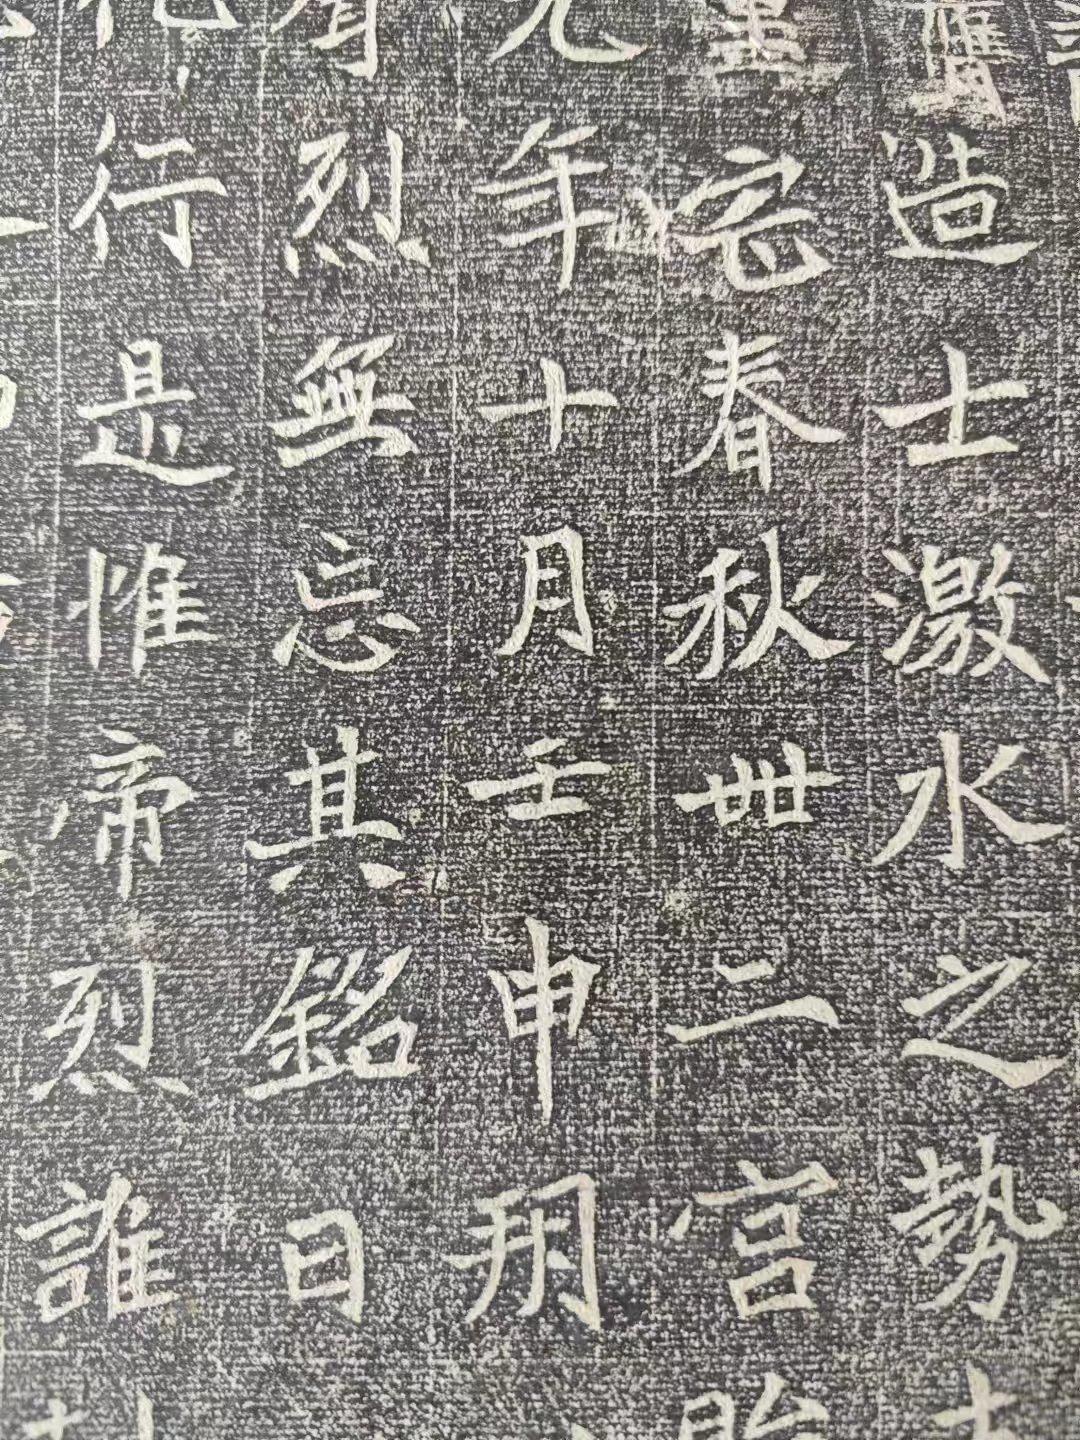 造士激水之勢
宅春秋卌二宫
年十月壬申朔
烈無忘其銘曰
行是惟帝烈誰